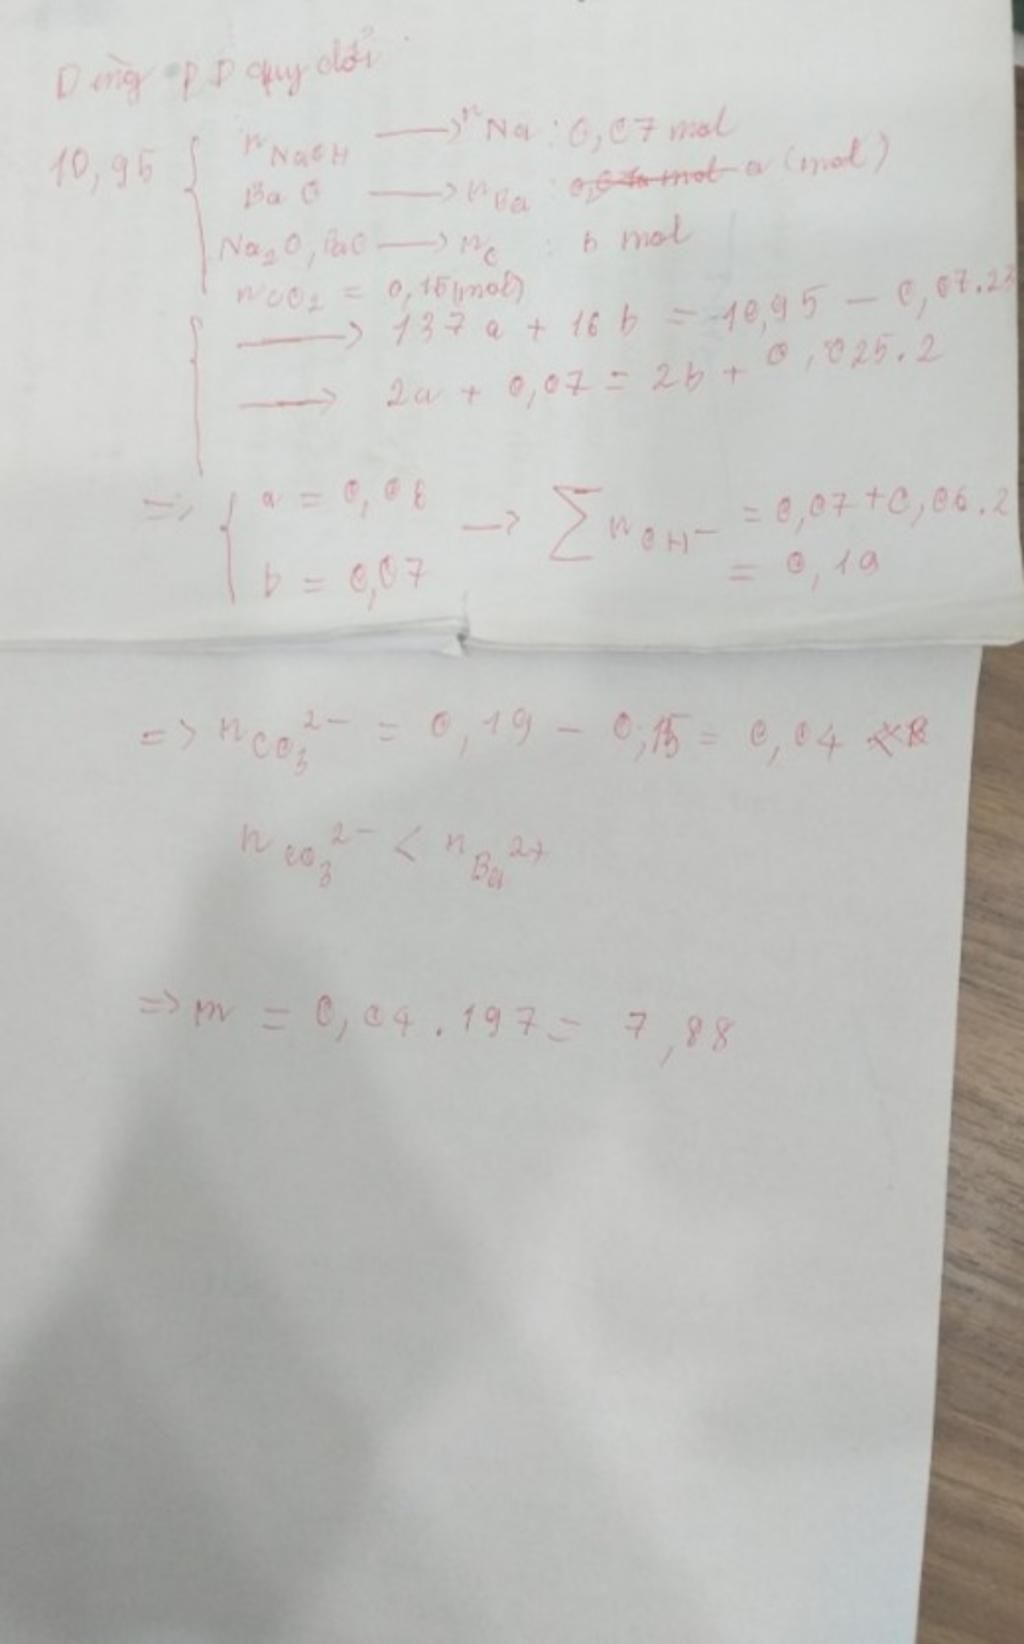 Dùng PP quy đổi
10,95 { nNaOH → nNa : 0,07 mol
BaO → nBa : a (mol)
Na₂O, BaO → nO : b mol
nCO₂ = 0,15 (mol)
→ 137a + 16b = 10,95 − 0,07.23
→ 2a + 0,07 = 2b + 0,025.2
=> { a = 0,06 → ∑nOH⁻ = 0,07 + 0,06.2
b = 0,07 = 0,19
=> nCO₃²⁻ = 0,19 − 0,15 = 0,04
nCO₃²⁻ < nBa²⁺
=> m = 0,04.197 = 7,88